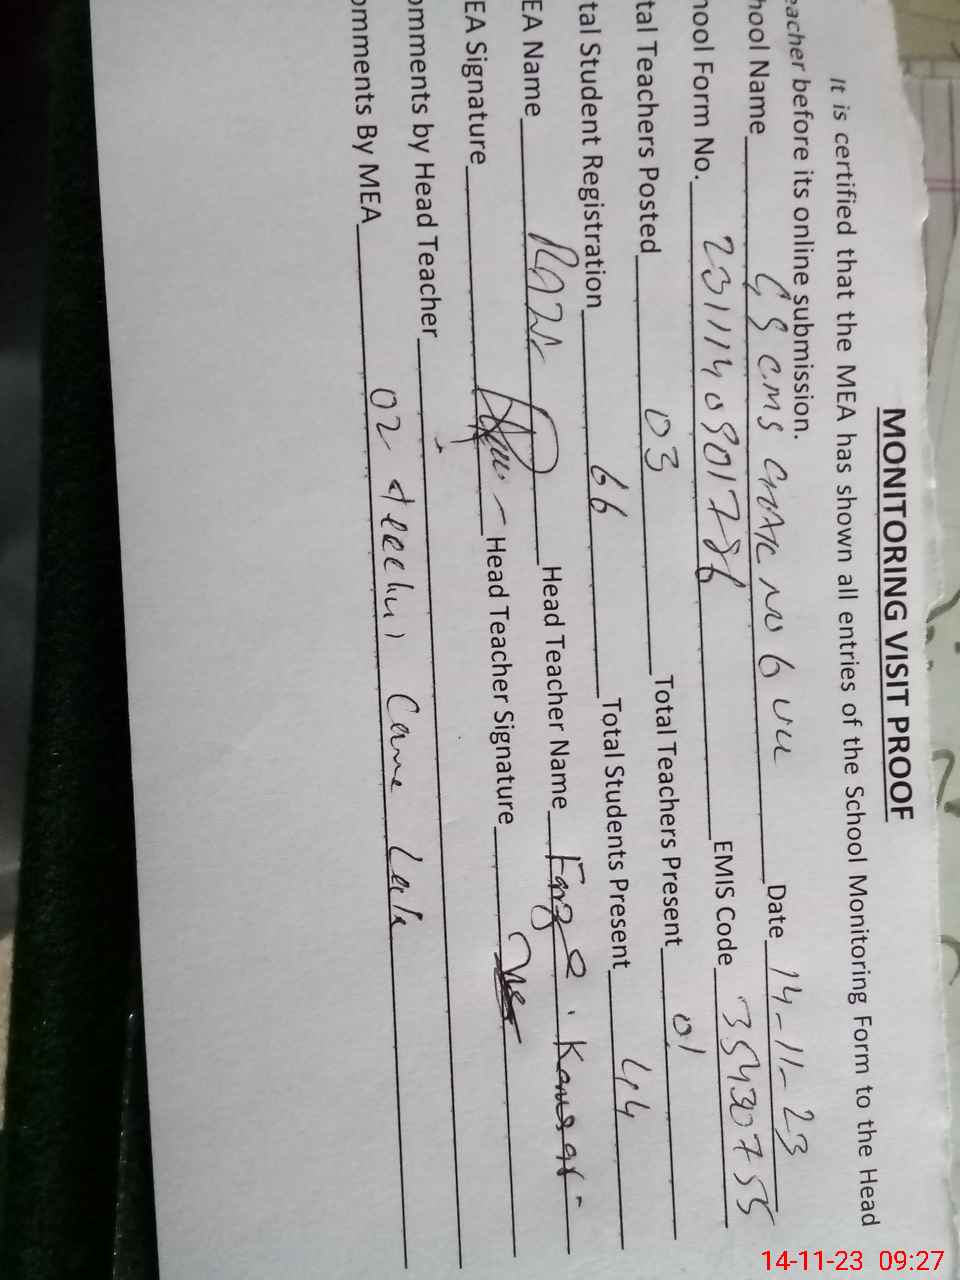 MONITORING VISIT PROOF
It is certified that the MEA has shown all entries of the School Monitoring Form to the Head
eacher before its online submission.
hool Name GS CMS No 6 Date 14-11-23
hool Form No. 2311140901786 EMIS Code 35430755
tal Teachers Posted 03 Total Teachers Present 01
tal Student Registration 66 Total Students Present 44
EA Name Head Teacher Name
EA Signature Head Teacher Signature
omments by Head Teacher
omments By MEA 02 Came Late
14-11-23 09:27